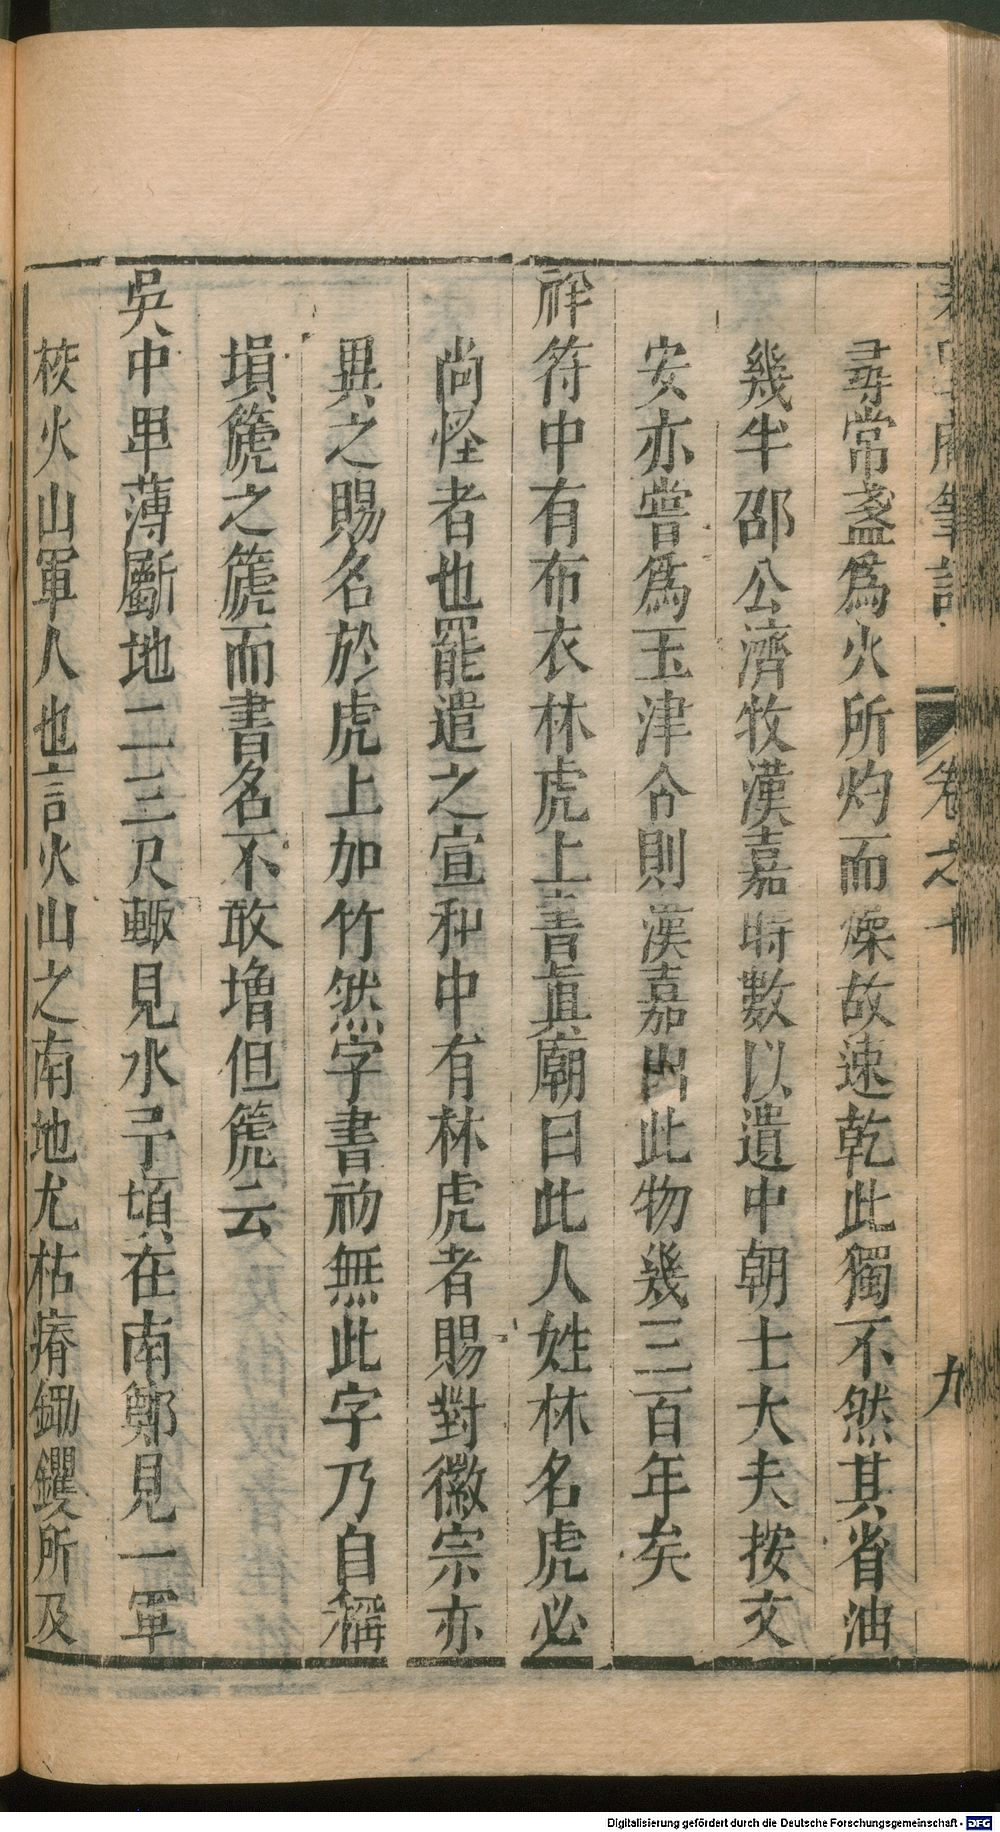 老學庵筆記 卷之十 九
尋常盞爲火所灼而燥故速乾此獨不然其省油
幾半邵公濟牧漢嘉時數以遺中朝士大夫按文
安亦嘗爲玉津令則漢嘉出此物幾三百年矣
祥符中有布衣林虎上書眞廟曰此人姓林名虎必
尚怪者也罷遣之宣和中有林虎者賜對徽宗亦
異之賜名於虎上加竹然字書初無此字乃自稱
塤篪之篪而書名不敢增但篪云
吳中卑薄斸地二三尺輙見水予頃在南鄭見一軍
校火山軍人也言火山之南地尤枯瘠鋤钁所及
Digitalisierung gefördert durch die Deutsche Forschungsgemeinschaft - DFG